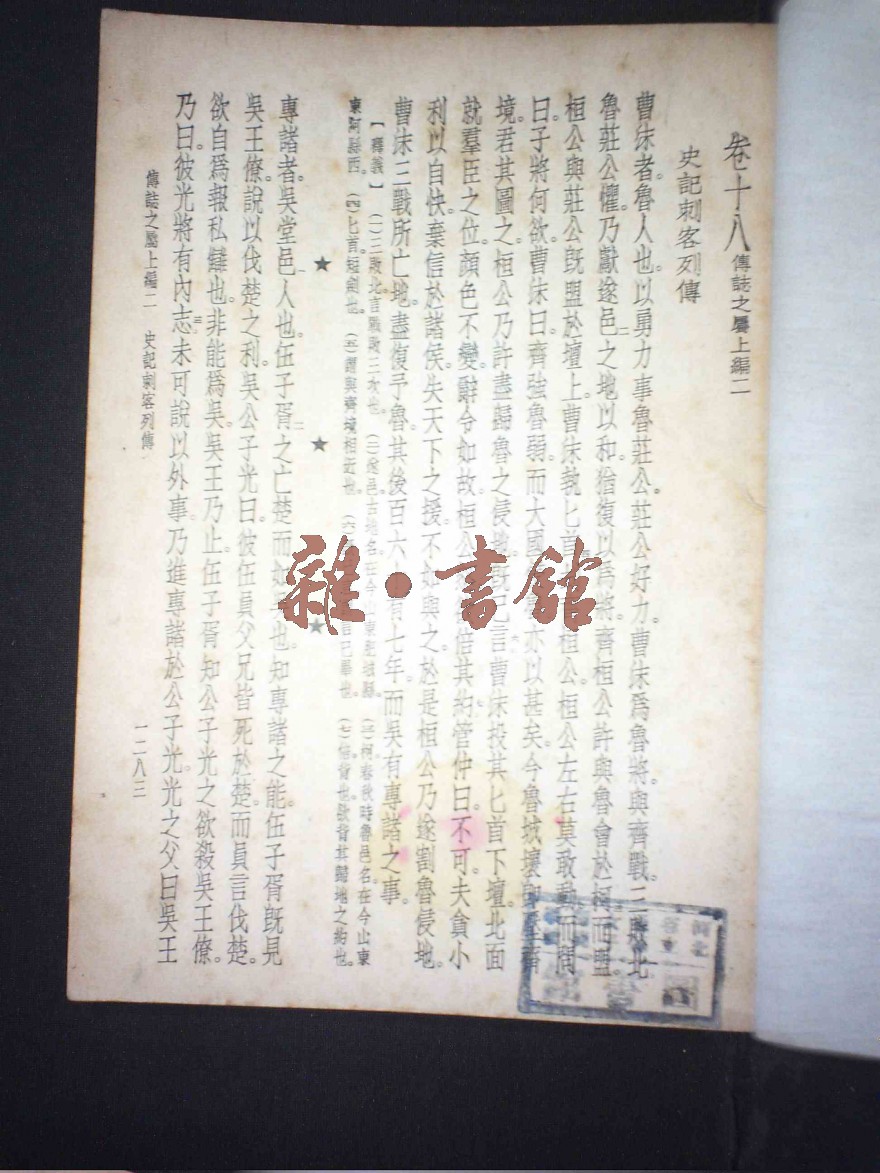 卷十八 傳誌之屬上編二
史記刺客列傳
曹沫者。魯人也。以勇力事魯莊公。莊公好力。曹沫爲魯將。與齊戰。三敗北
魯莊公懼。乃獻遂邑之地以和。猶復以爲將。齊桓公許與魯會於柯而盟。
桓公與莊公既盟於壇上。曹沫執匕首桓公。桓公左右莫敢動。而問
曰。子將何欲。曹沫曰。齊強魯弱。而大國亦以甚矣。今魯城壞卽壓齊
境。君其圖之。桓公乃許盡歸魯之侵地。既已言。曹沫投其匕首。下壇。北面
就羣臣之位。顏色不變。辭令如故。桓公倍其約。管仲曰。不可。夫貪小
利以自快。棄信於諸侯。失天下之援。不如與之。於是桓公乃遂割魯侵地。
曹沫三戰所亡地。盡復予魯。其後百六有七年。而吳有專諸之事。
【釋義】(一)三敗北言戰敗三次也。(二)遂邑古地名。在今山東肥城縣。(三)柯春秋時魯邑名。在今山東
東阿縣西。(四)匕首短劍也。(五)謂與齊境相近也。(六)言已畢也。(七)倍背也。欲背其歸地之約也。
★ ★ ★
專諸者。吳堂邑人也。伍子胥之亡楚而如也。知專諸之能。伍子胥既見
吳王僚。說以伐楚之利。吳公子光曰。彼伍員父兄皆死於楚。而員言伐楚。
欲自爲報私讎也。非能爲吳。吳王乃止。伍子胥知公子光之欲殺吳王僚。
乃曰。彼光將有內志。未可說以外事。乃進專諸於公子光。光之父曰吳王
傳誌之屬上編二 史記刺客列傳
一二八三
雜·書館